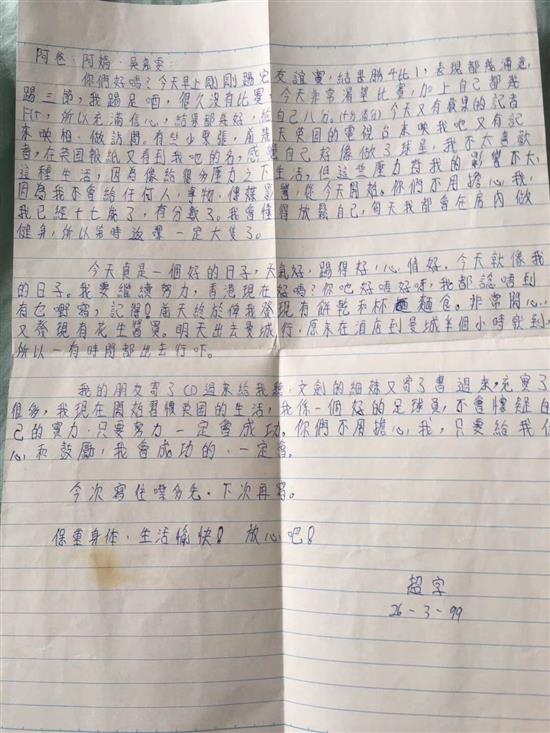 阿爸、阿媽、吳嘉雯:
你們好嗎?今天早上剛剛踢完友誼賽,結果勝4比1,表現都幾滿意,
踢三節,我踢足晒,很久沒有比賽,今天非常渴望比賽,加上自己都幾
Fit,所以充滿信心,結果都幾好,給自己八分。(十分滿分)今天又有香港的記者
來映相、做訪問,有些少緊張,前幾天英国的電視台來映我吔又有記
者,在英国報紙又看到我吔的名,感覺自己好像做了球星,我不太喜歡
這種生活,因為像給很多壓力之下生活,但這些壓力對我的影響不大,
因為我不會給任何人、事物、傳媒影響,從今天開始,你們不用擔心我,
我已經十七歲了,有分數了。我會懂得放鬆自己,每天我都會在房內做
健身,所以第時返黎一定大隻了。
今天真是一個好的日子,天氣好,踢得好,心情好,今天就像我
的日子。我要繼續努力,香港現在好嗎?你吔好唔好呀,我都諗唔到
有乜嘢寫,記得!前天終於俾我發現有餅乾和杯麵食。非常開心,
又發現有花生醬買。明天出去曼城行,原來在酒店到曼城半個小時就到,
所以一有時間都出去行吓。
我的朋友寄了CD過來給我聽,文劍的細妹又寄了書過來,充實了
很多,我現在開始習慣英国的生活,我係一個好的足球員,不會懷疑自
己的實力,只要努力一定會成功。你們不用擔心我,只要給我信
心和鼓勵,我會成功的,一定會。
今次寫住咁多先,下次再寫。
保重身体,生活愉快! 放心吧!
超宇
26-3-99